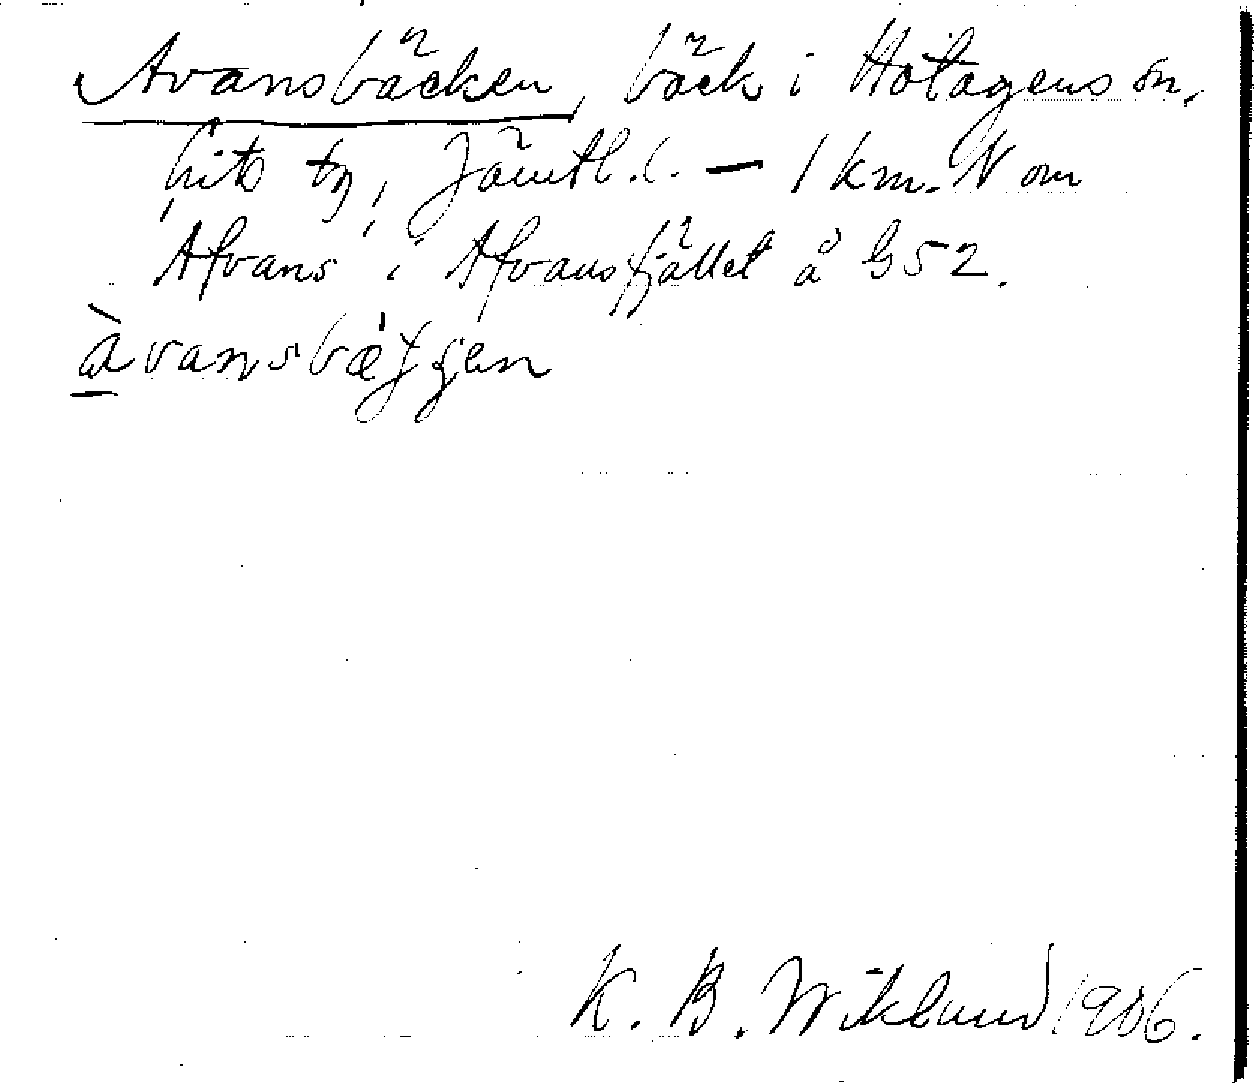 Avansbäcken, bäck i Hotagens sn,
Lits tg, Jämtl. l. — 1 km. N om
Afvans i Afvansfjället å G52.
àvansbæʃʃen
K. B. Wiklund 1906.